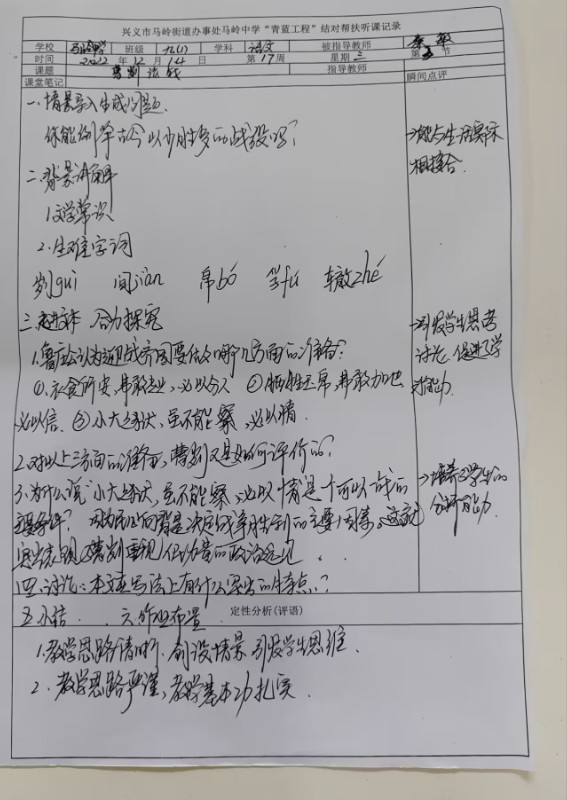 兴义市马岭街道办事处马岭中学“青蓝工程”结对帮扶听课记录
学校 马岭中学 班级 九(1) 学科 语文 被指导教师
时间 2022 年 12 月 14 日 第 17 周 星期 三 第 节
课题 曹刿论战 指导教师
课堂笔记 瞬间点评
一、情景导入 生成问题
你能列举古今以少胜多的战役吗?
→能与生活实际
相接合.
二、背景讲解
1.文学常识
2.生难字词
刿guì 间jiàn 帛bó 孚fú 辙zhé
三、走进文本 合力探究
→引发学生思考
讨论,促进了学
1.鲁庄公认为迎战齐国要做好哪几方面的准备?
①.衣食所安,弗敢专也,必以分人 ②牺牲玉帛,弗敢加也
必以信. ③小大之狱,虽不能察,必以情.
2.对以上三方面的准备,曹刿又是如何评价的?
3.为什么说“小大之狱,虽不能察,必以情”是“可以一战”的
→培养了学生的
分析能力.
主要条件? 因为民心向背是决定战争胜利的主要因素。这就
四、讨论:本文在写法上有什么突出的特点?
五、小结. 六、作业布置
定性分析(评语)
1.教学思路清晰.创设情景 引发学生思维.
2.教学思路严谨,教学基本功扎实.